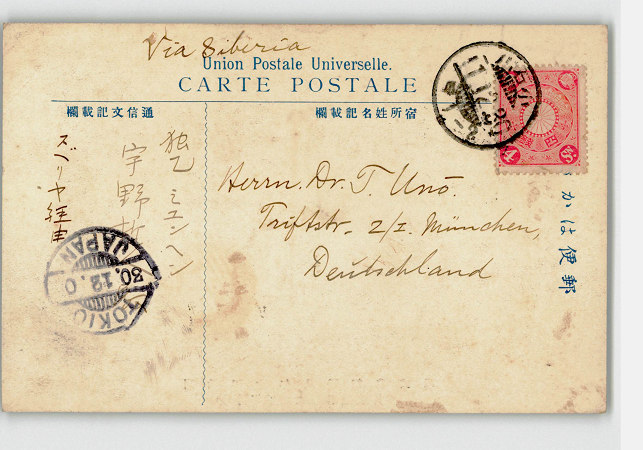 Via Siberia
Union Postale Universelle.
CARTE POSTALE
欄載記文信通
欄載記名姓所宿
独乙ミュンヘン
宇野哲
スベリヤ経由
Herrn. Dr. T. Uno.
Triftstr. 2/I. München,
Deutschland
郵便はか
TOKIO
30.12.0
JAPAN